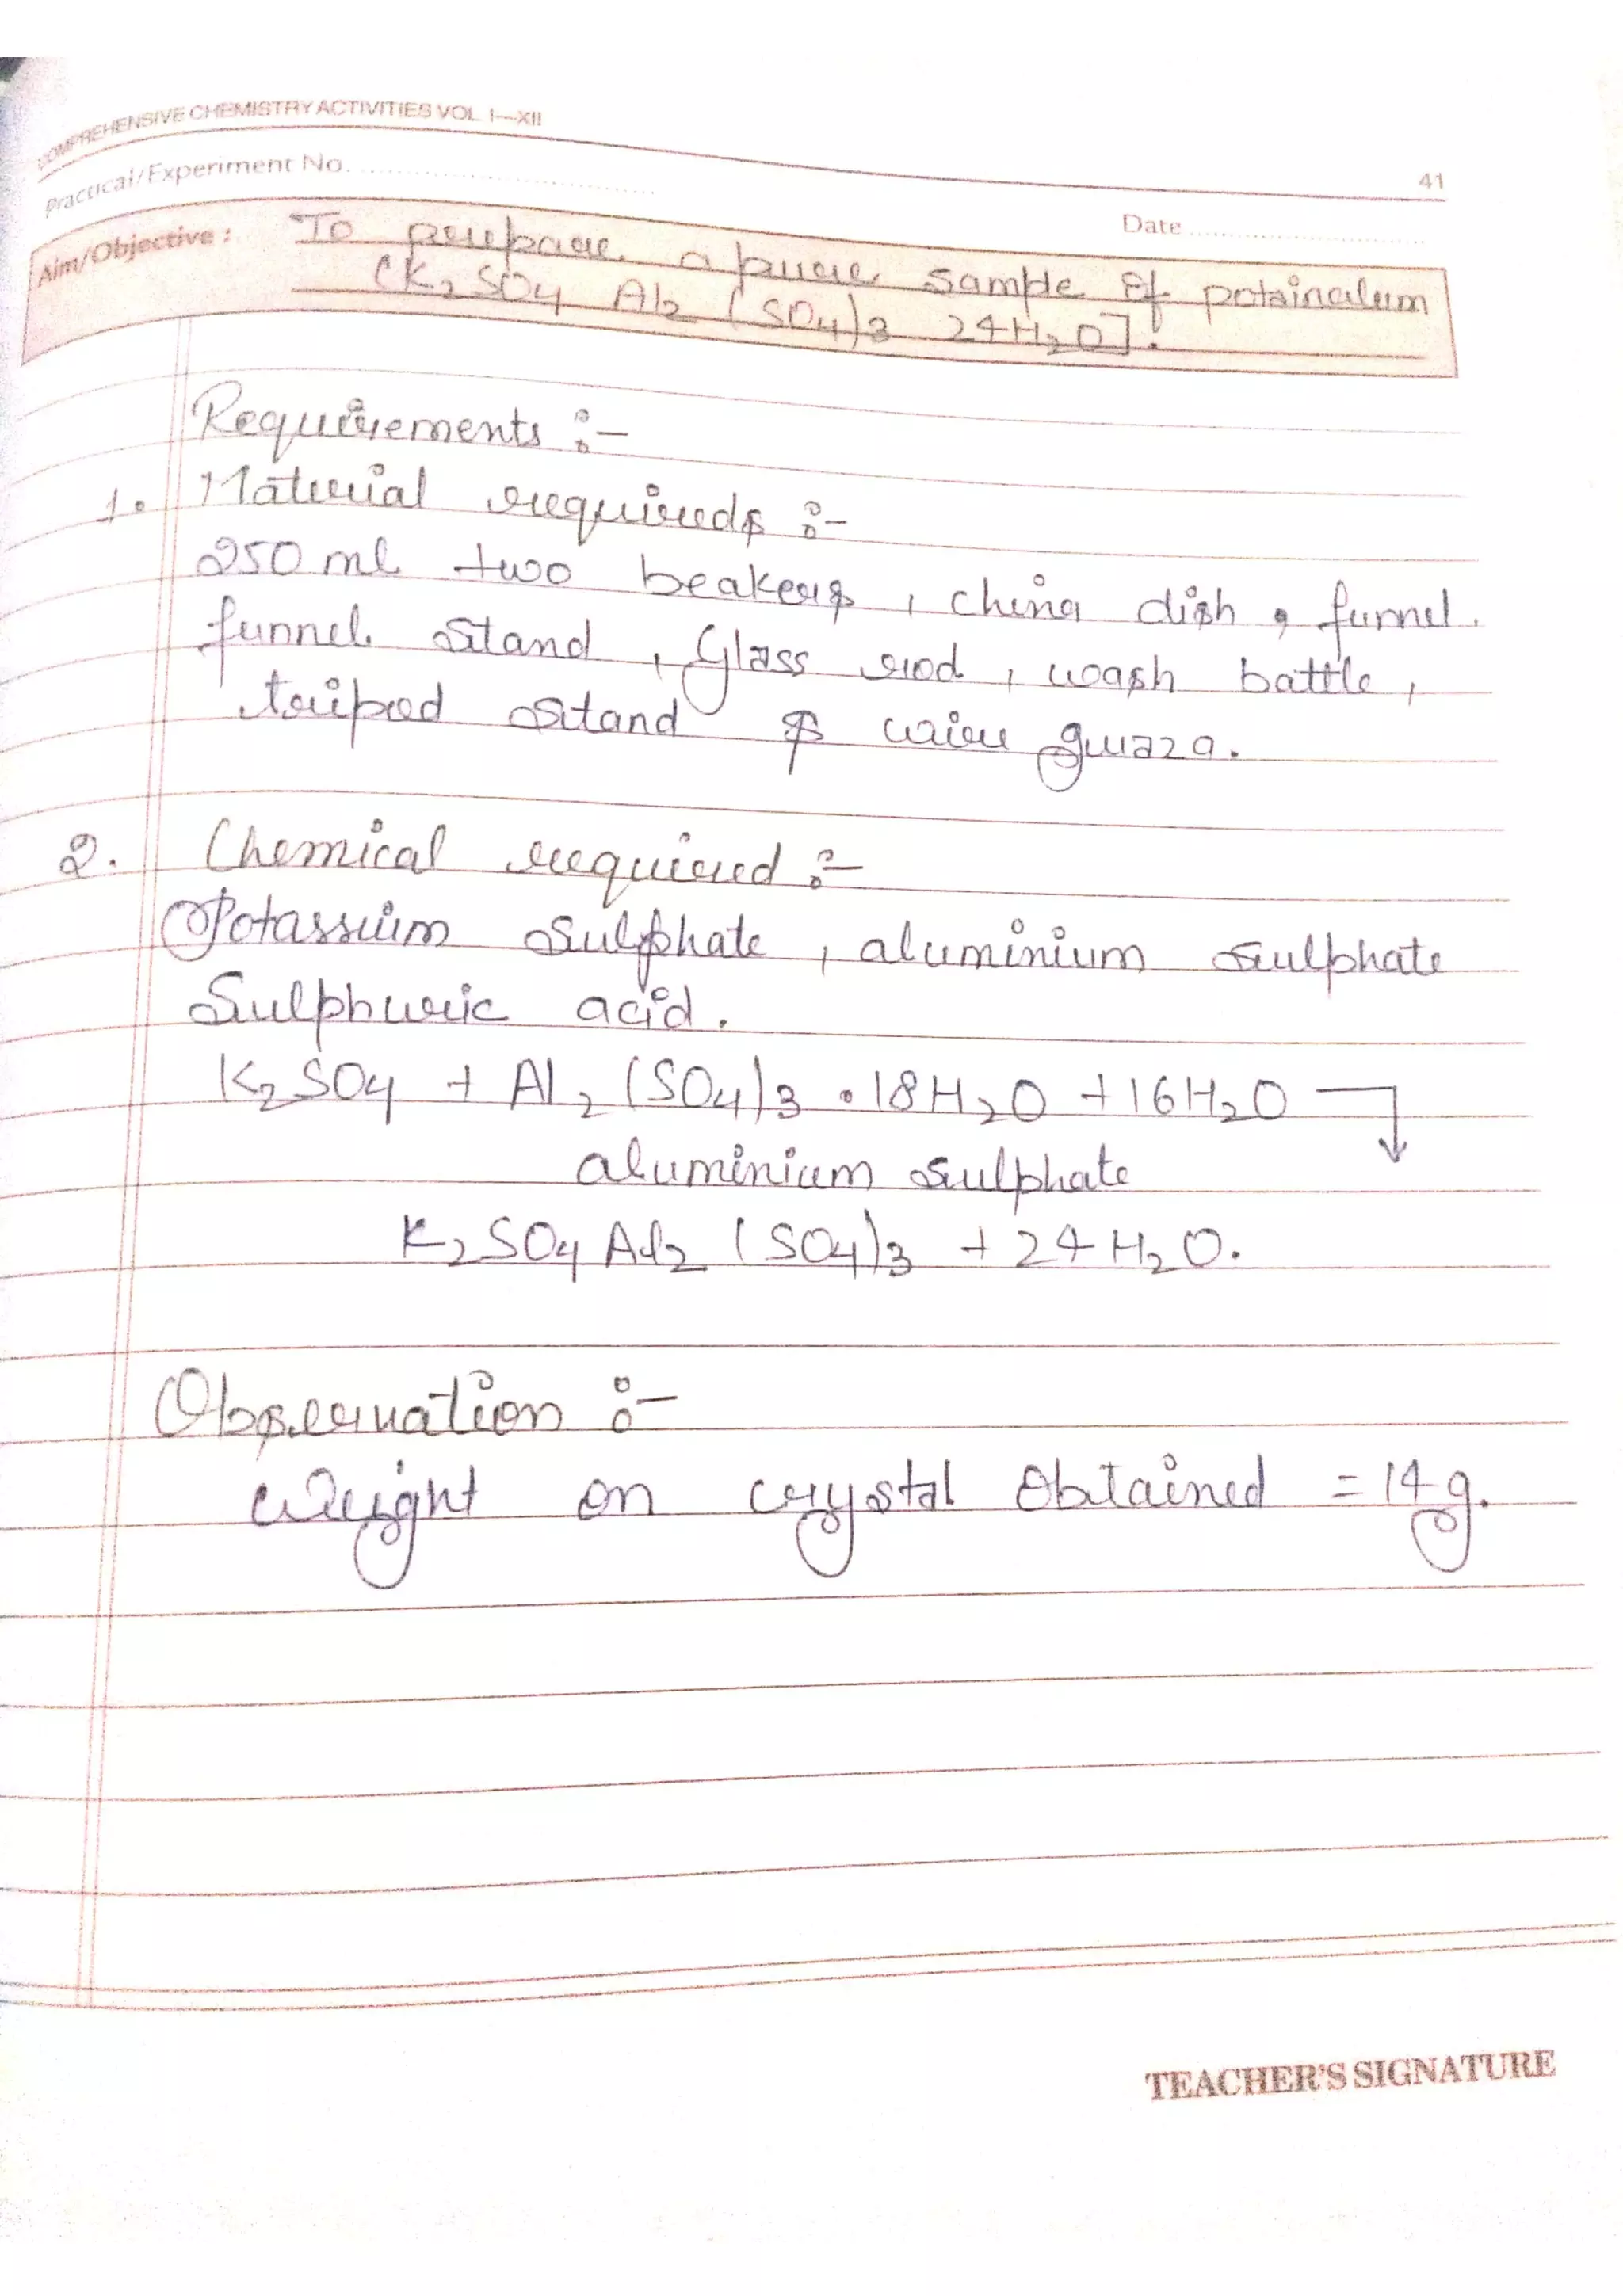 COMPREHENSIVE CHEMISTRY ACTIVITIES VOL. I—XII
41
Practical/Experiment No.
Date
Aim/Objective : To prepare a pure sample of potainalum
(K₂SO₄ Al₂ (SO₄)₃ 24H₂O].
Requirements :-
1. Material requireds :-
250 ml two beakers, china dish, funnel.
funnel stand, Glass rod, wash battle,
tripod stand & wire guaza.
2. Chemical required :-
Potassium Sulphate, aluminium Sulphate
Sulphuric acid.
K₂SO₄ + Al₂(SO₄)₃ • 18H₂O + 16H₂O
aluminium sulphate
K₂SO₄ Al₂ (SO₄)₃ + 24H₂O.
Observation :-
Weight on crystal Obtained = 14g.
TEACHER'S SIGNATURE